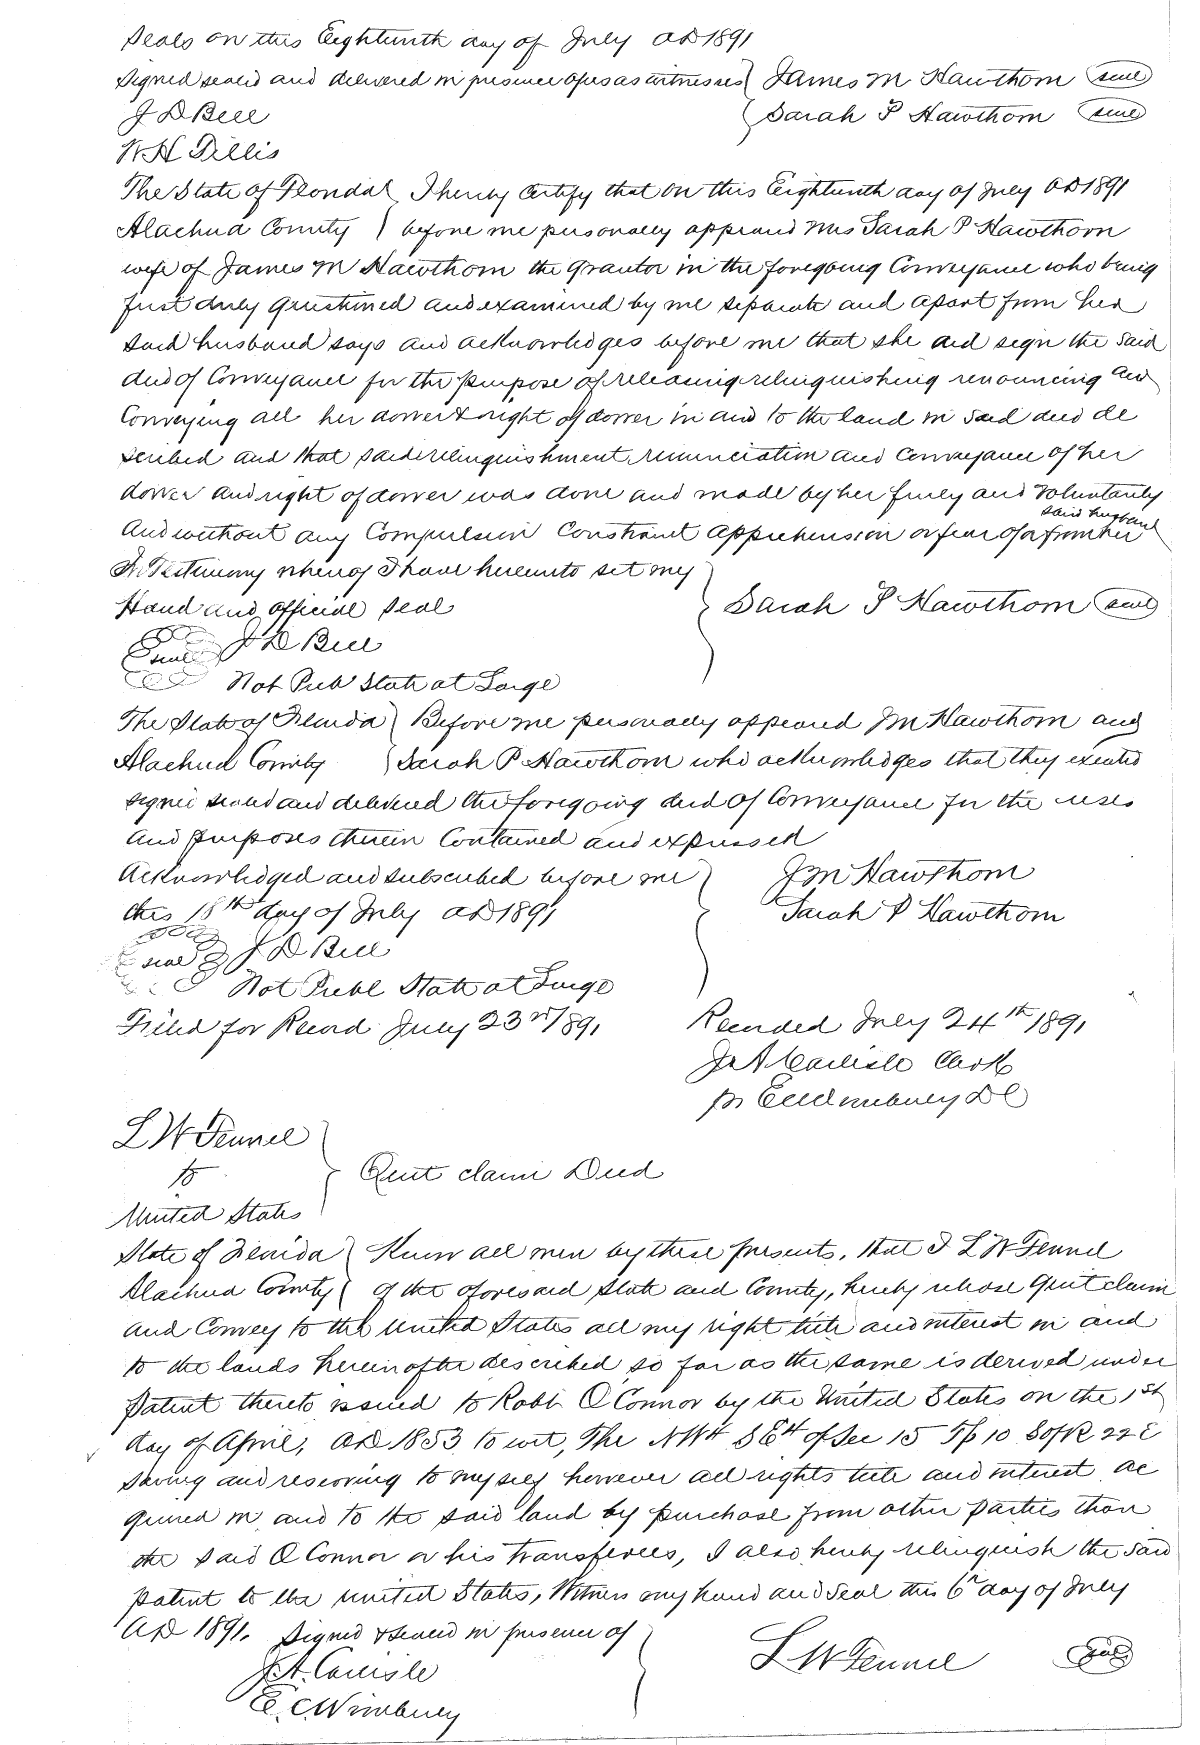 Seals on this Eighteenth day of July AD 1891
Signed sealed and delivered in presence of us as witnesses } James M Hawthorn (seal)
J D Bell } Sarah P Hawthorn (seal)
W H Tillis
The State of Florida } I hereby certify that on this Eighteenth day of July AD 1891
Alachua County } before me personally appeared Mrs Sarah P Hawthorn
wife of James M Hawthorn the grantor in the foregoing Conveyance who being
first duly questioned and examined by me separate and apart from her
said husband says and acknowledges before me that she did sign the said
deed of Conveyance for the purpose of releasing relinquishing renouncing and
Conveying all her dower & right of dower in and to the land in said deed de
scribed and that said relinquishment, renunciation and Conveyance of her
dower and right of dower was done and made by her freely and voluntarily
and without any Compulsion Constraint apprehension or fear of or from her said husband
In Testimony whereof I have hereunto set my }
Hand and official seal } Sarah P Hawthorn (seal)
seal J D Bell
Not Pub State at Large
The State of Florida } Before me personally appeared JM Hawthorn and
Alachua County } Sarah P Hawthorn who acknowledges that they executed
signed sealed and delivered the foregoing deed of Conveyance for the uses
and purposes therein Contained and expressed
Acknowledged and subscribed before me } JM Hawthorn
this 18th day of July AD 1891 } Sarah P Hawthorn
seal J D Bell
Not Publ State at Large
Filed for Record July 23rd/891 Recorded July 24th 1891
J A Carlisle Clerk
pr E C Wimberley D C
L W Fennel }
to } Quit claim Deed
United States
State of Florida } Know all men by these presents, that I L W Fennel
Alachua County } of the aforesaid State and County, hereby release Quit claim
and Convey to the United States all my right title and interest in and
to the lands hereinafter described so far as the same is derived under
Patent thereto issued to Robt O Connor by the United States on the 1st
day of April, AD 1853 to wit, The NW4 SE4 of Sec 15 Tp 10 S of R 22 E
saving and reserving to myself however all rights title and interest ac
quired in and to the said land by purchase from other parties than
the said O Connor or his transferees, I also hereby relinquish the said
patent to the United States, Witness my hand and seal this 6th day of July
AD 1891. Signed & sealed in presence of } L W Fennel (seal)
J. A. Carlisle
E. C. Wimberley